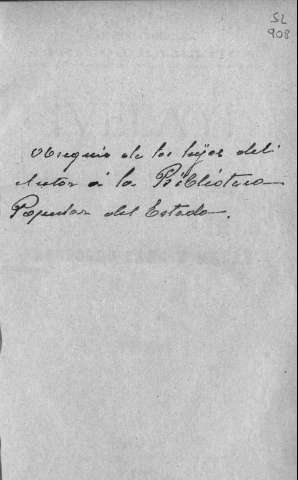 SL
908
Obsequio de los hijos del
Autor á la Biblioteca
Popular del Estado.